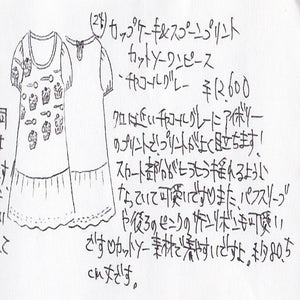 カップケーキ&スプーンプリント
カットソーワンピース
チャコールグレー ¥12600
クロに近いチャコールグレーにアイボリー
のプリントで、プリントがよく目立ちます!
スカート部分がとろとろ揺れるように
なっていて可愛いです♡また、パフスリーブ
や後ろのピンクのサテンリボンも可愛い
です♡カットソー素材で着やすいですよ。約80.5
cm丈です。